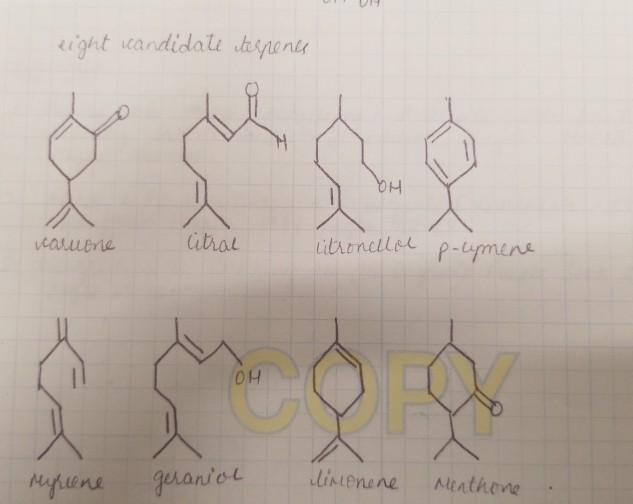 eight candidate terpenes
O
O
H
OH
carvone
citral
citronellol
p-cymene
OH
O
COPY
myrcene
geraniol
limonene
Menthone